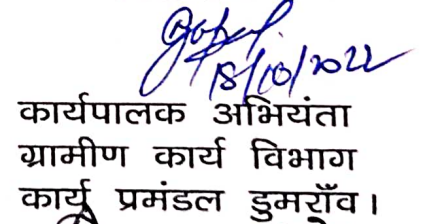 18/10/2022
कार्यपालक अभियंता
ग्रामीण कार्य विभाग
कार्य प्रमंडल डुमराँव।